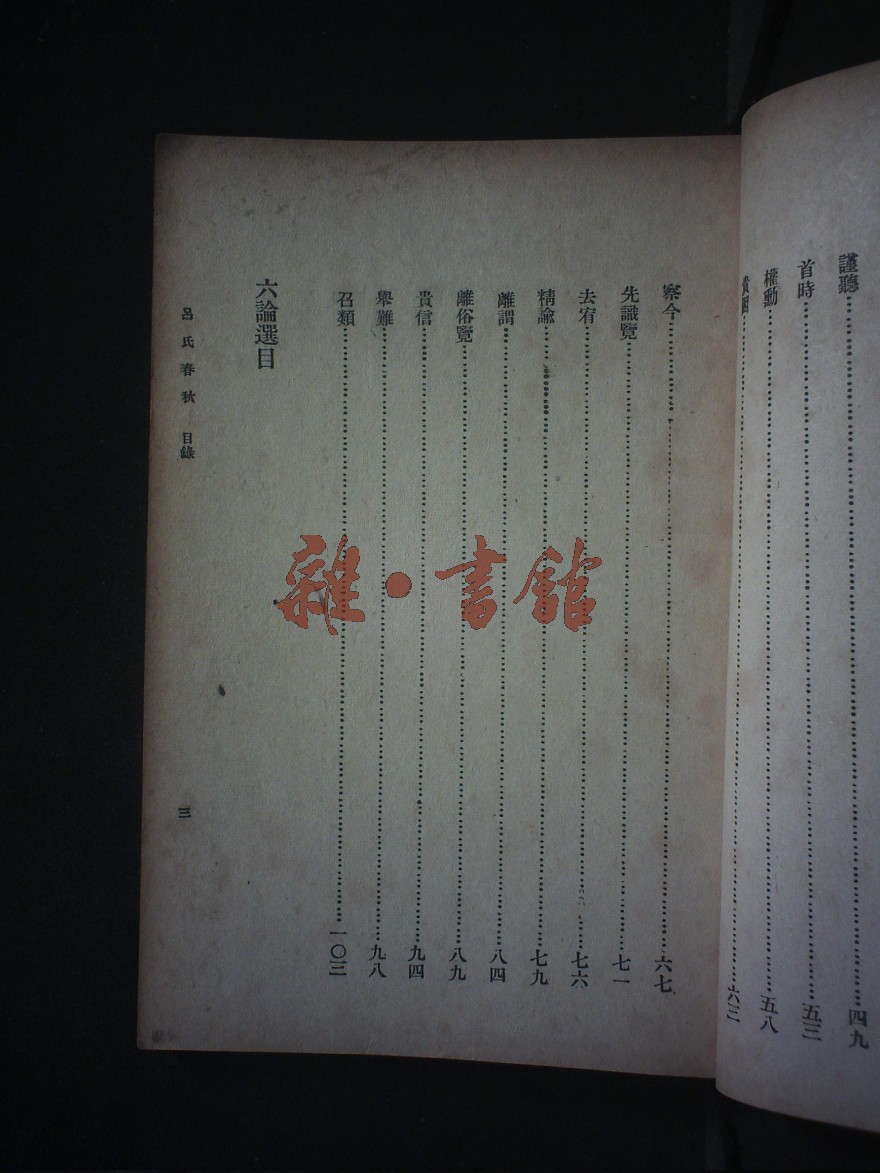 謹聽……四九
首時……五三
權勳……五八
貴因……六三
察今……六七
先識覽……七一
去宥……七六
精諭……七九
離謂……八四
離俗覽……八九
貴信……九四
舉難……九八
召類……一〇三
六論選目
呂氏春秋 目錄
三
雜·書館